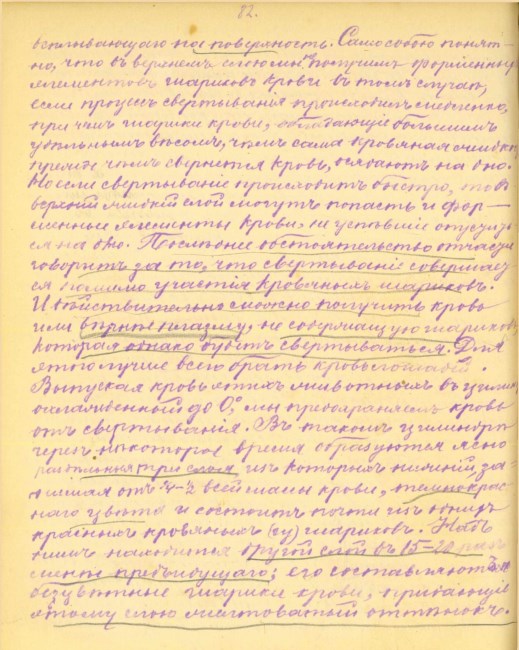 82.
всплывающаю на поверхность. Само собою понят-
но, что въ верхнемъ слое мы не получимъ форменныхъ
элементовъ шариковъ крови въ томъ случаѣ,
если процессъ свертыванья происходитъ медленно,
при чемъ шарики крови, обладающіе большимъ
удѣльнымъ вѣсомъ, чѣмъ сама кровяная жидкость
прежде чѣмъ свернется кровь, осядаютъ на дно.
Но если свертываніе происходитъ быстро, то въ
верхній жидкій слой могутъ попасть и фор-
менные элементы крови, не успѣвшіе опустить
ся на дно. Послѣднее обстоятельство отчасти
говоритъ за то, что свертываніе совершает
ся помимо участія кровяныхъ шариковъ.
И дѣйствительно можно получить кровь
или вѣрнѣе плазму, не содержащую шариковъ,
которая однако будетъ свертываться. Для
этого лучше всего брать кровь лошадей.
Выпуская кровь этихъ животныхъ въ цилиндръ
охлажденный до 0°, мы предохраняемъ кровь
отъ свертыванія. Въ такомъ цилиндрѣ
черезъ нѣкоторое время образуются ясно
раздѣльныя три слоя, изъ которыхъ нижній, за-
нимая отъ всей массы крови, темнокрас-
наго цвѣта и состоитъ почти изъ однихъ
красныхъ кровяныхъ (су) шариковъ. Надъ
нимъ находится другой слой въ 15–20 разъ
менѣе предъидущаго; его составляютъ
безцвѣтные шарики крови, придающіе
этому слою желтоватый оттѣнокъ.